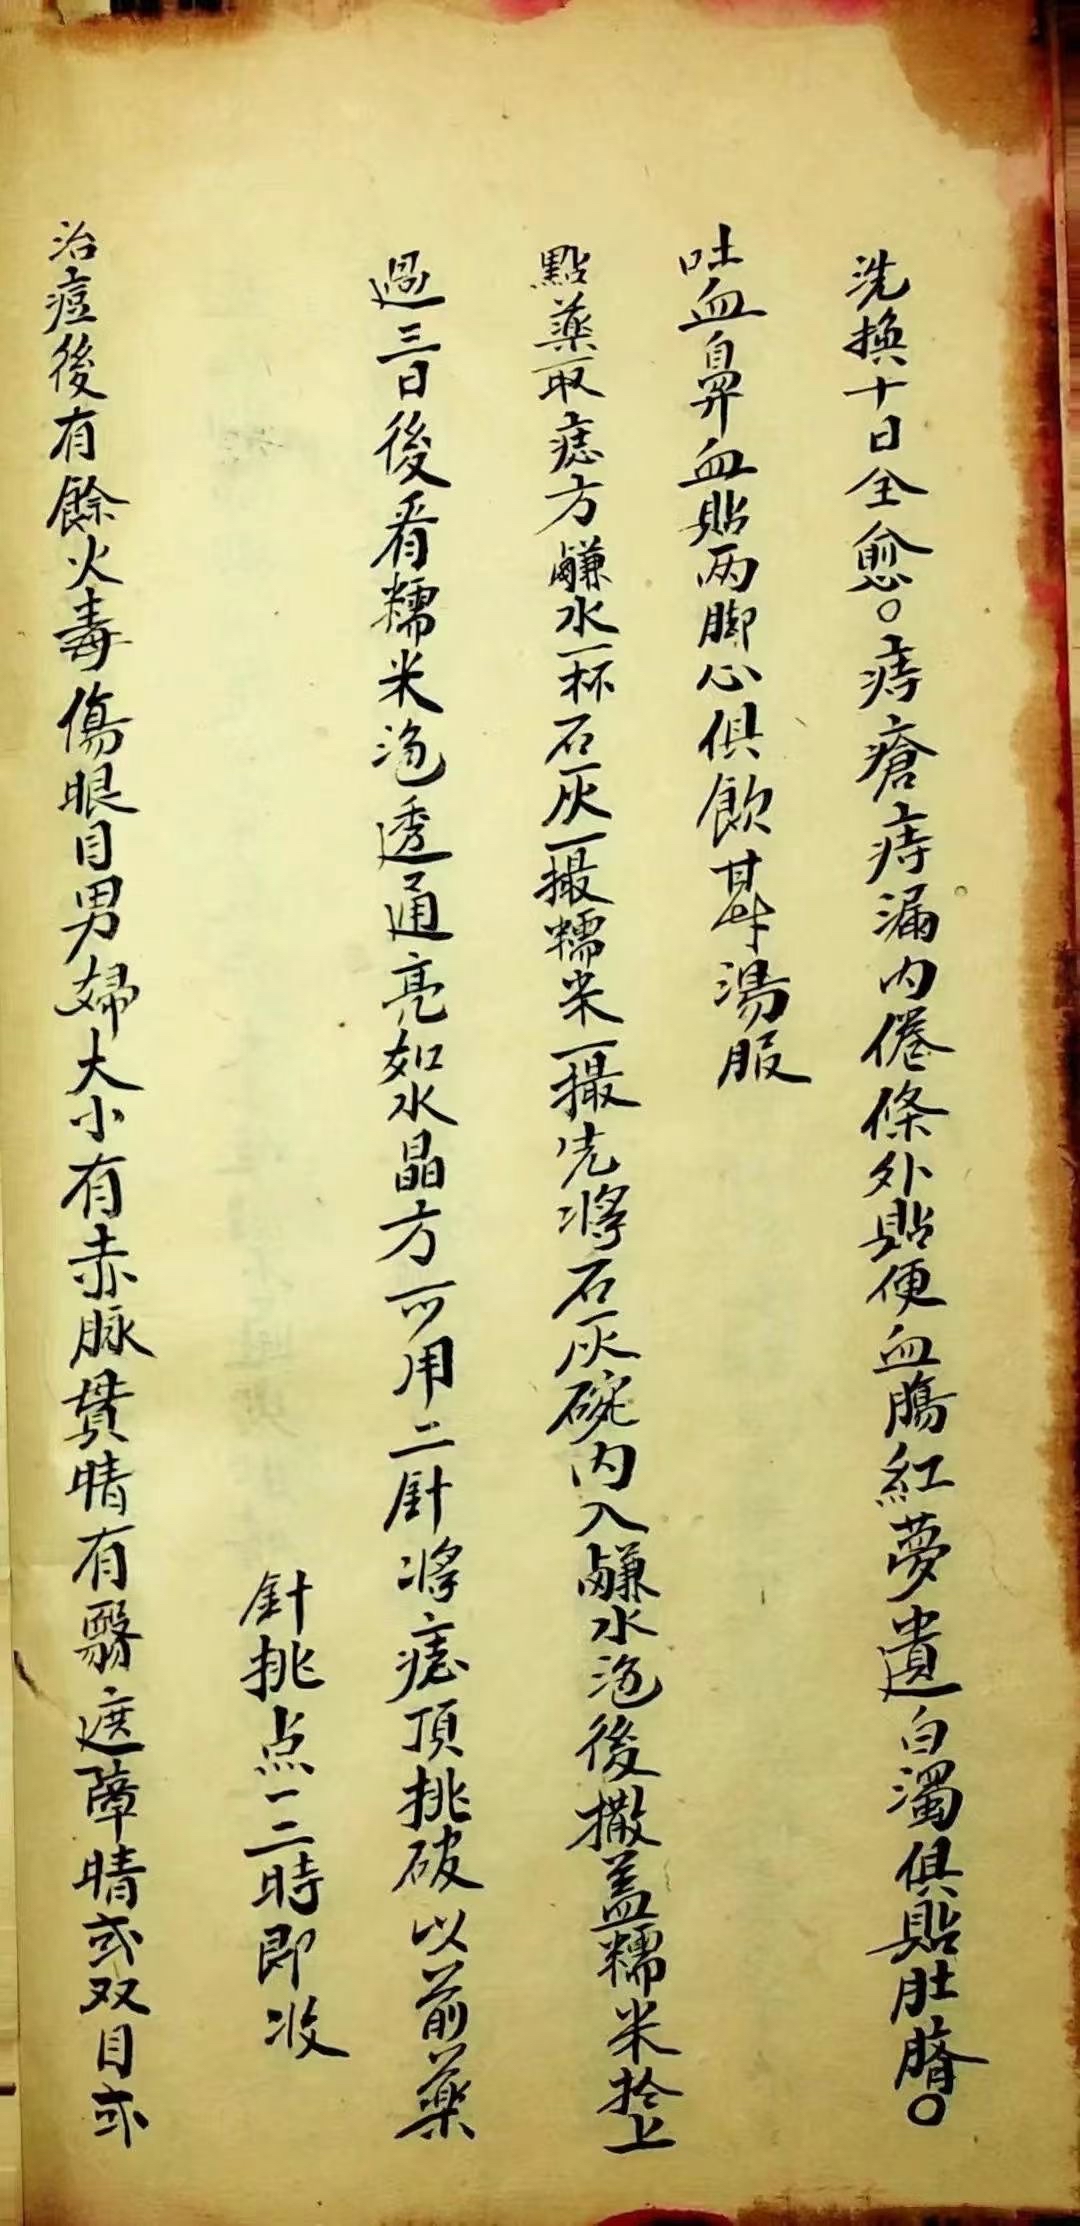 洗換十日全愈。痔瘡痔漏内倦條外貼便血腸紅夢遺白濁俱貼肚臍。
吐血鼻血貼两脚心俱飲湯服
點藥取痣方鹻水一杯石灰一撮糯米一撮先將石灰碗内入鹻水泡後撒蓋糯米於上
過三日後看糯米泡透通亮如水晶方可用二針將痣頂挑破以前藥
針挑点一二時即收
治痘後有餘火毒傷眼目男婦大小有赤脉貫睛有翳遮障睛或双目或